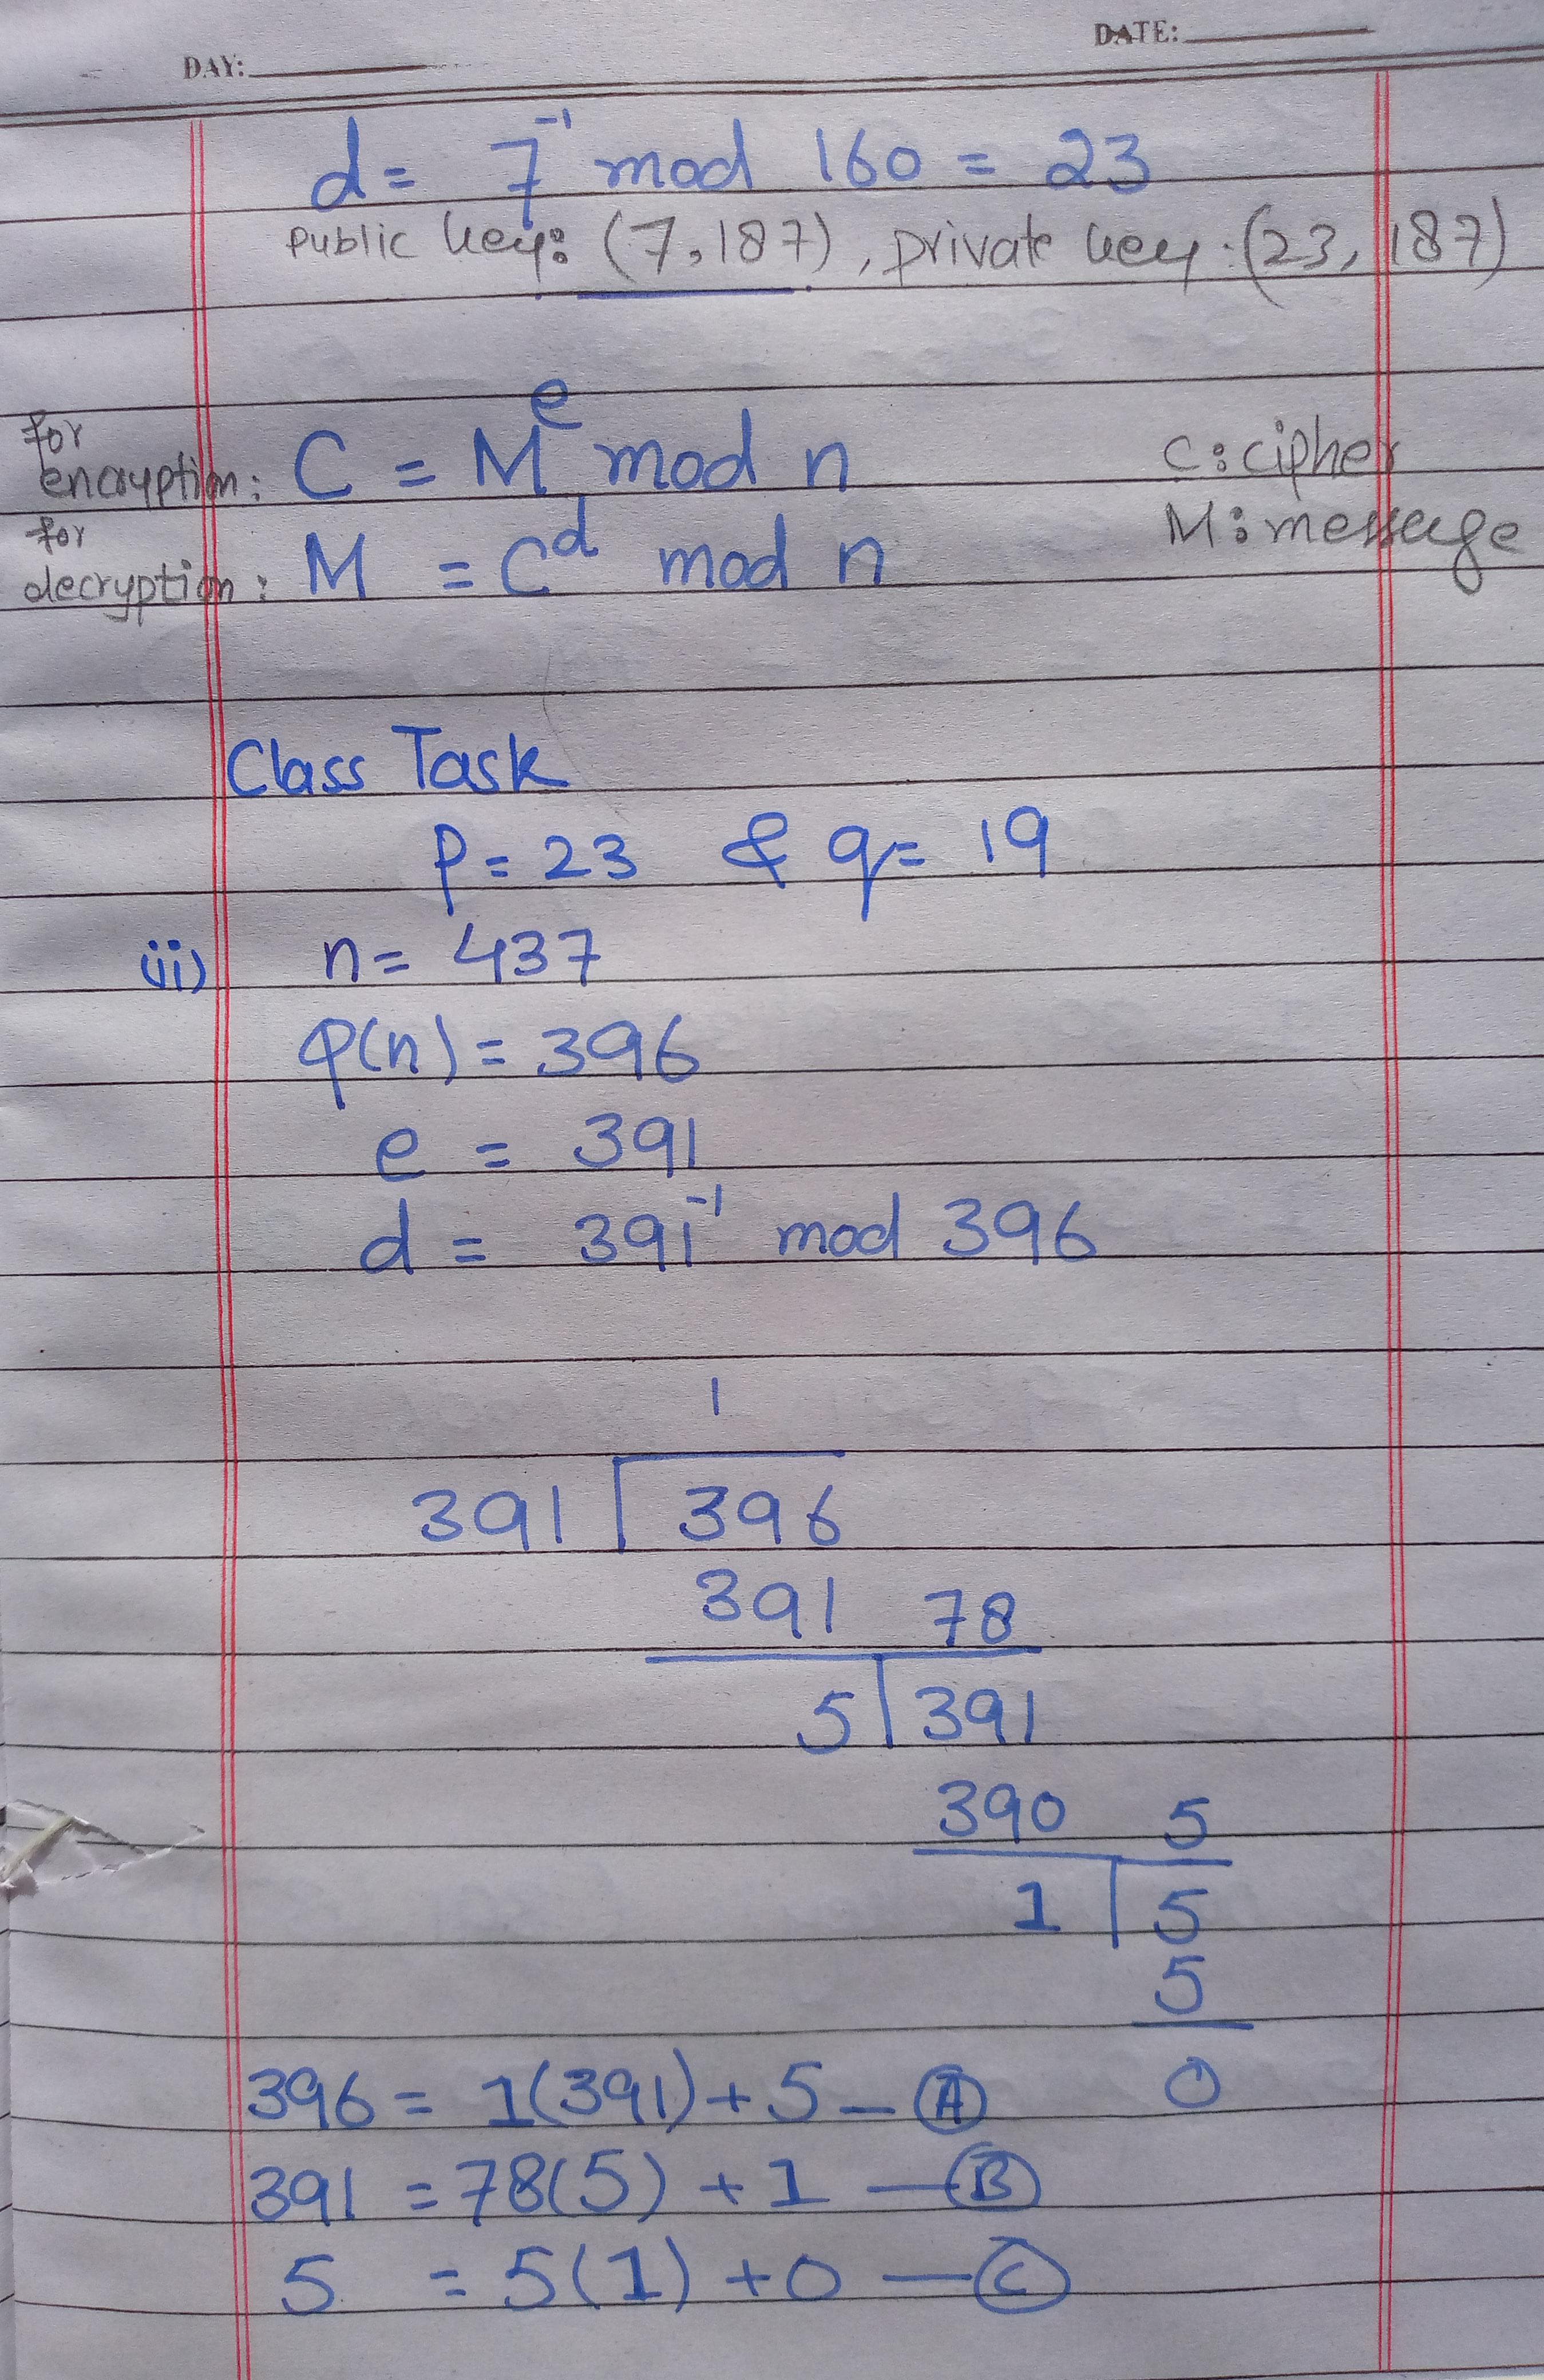 DAY: DATE:
d = 7⁻¹ mod 160 = 23
public key: (7,187), private key: (23, 187)
for encryption: C = Mᵉ mod n C: cipher
for decryption: M = Cᵈ mod n M: message
Class Task
P = 23 & q = 19
(ii) n = 437
φ(n) = 396
e = 391
d = 391⁻¹ mod 396
1
391 396
391 78
5 391
390 5
1 5
5
0
396 = 1(391) + 5 — A
391 = 78(5) + 1 — B
5 = 5(1) + 0 — C